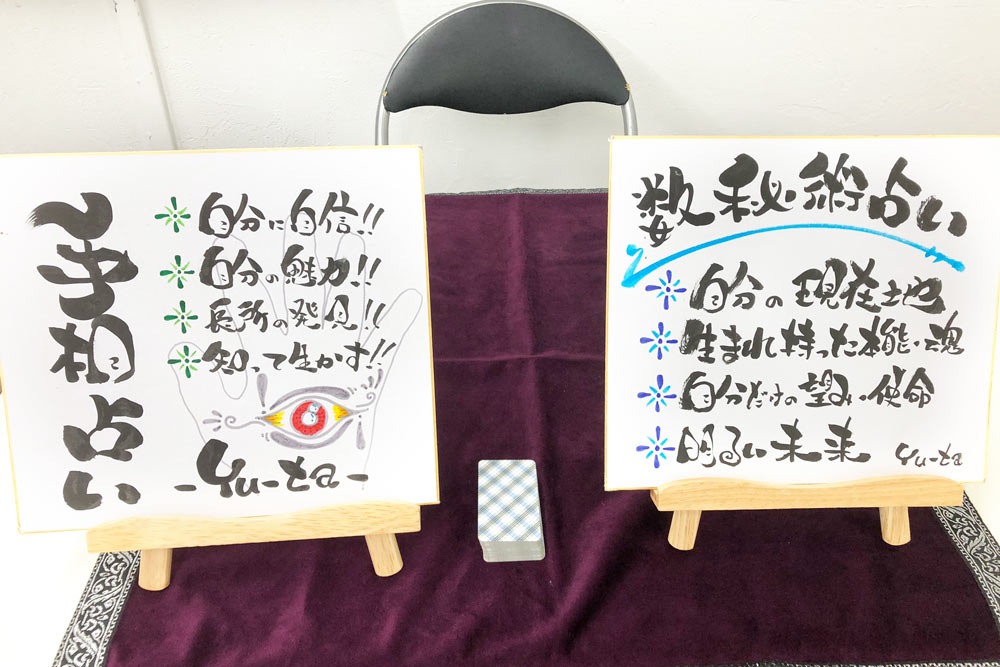 手相占い
自分に自信!!
自分の魅力!!
長所の発見!!
知って生かす!!
-Yu-ta-
数秘術占い
自分の現在地
生まれ持った本能・魂
自分だけの望み・使命
明るい未来
Yu-ta